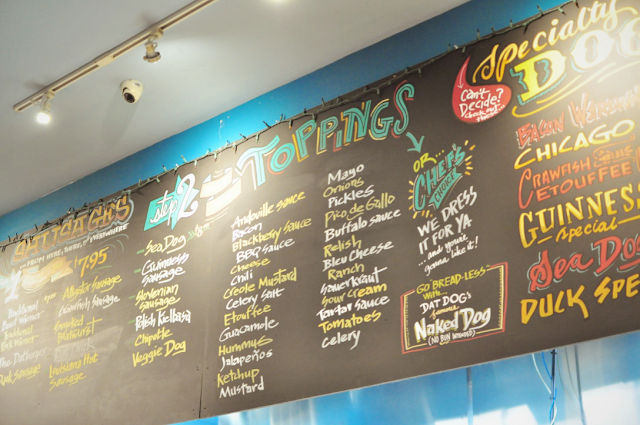 SAUSAGES
FROM HERE, THERE, & EVERYWHERE
$7.95
Alligator Sausage
Crawfish Sausage
Smoked
Bratwurst
Louisiana Hot
Sausage
Duck Sausage
Sea Dog
Guinness
Sausage
Slovenian
Sausage
Polish Kelbasa
Chipotle
Veggie Dog
step 2
TOPPINGS
Andouille sauce
Bacon
Blackberry sauce
BBQ sauce
Cheese
Chili
Creole Mustard
Celery Salt
Etouffee
Guacamole
Hummus
Jalapeños
Ketchup
Mustard
Mayo
Onions
Pickles
Pico de Gallo
Buffalo sauce
Relish
Bleu Cheese
Ranch
Sauerkraut
Sour Cream
Tartar Sauce
Tomatoes
Celery
OR...
CHEF'S
CHOICE
WE DRESS
IT FOR YA
...and you're
gonna like it!
GO BREAD-LESS
with...
DAT DOG'S
famous
Naked Dog
(NO BUN INTENDED)
Specialty
DOG
Can't
Decide?
check out
these...
BACON
CHICAGO
CRAWFISH
ETOUFFEE
GUINNESS
special
Sea Dog
DUCK SPE